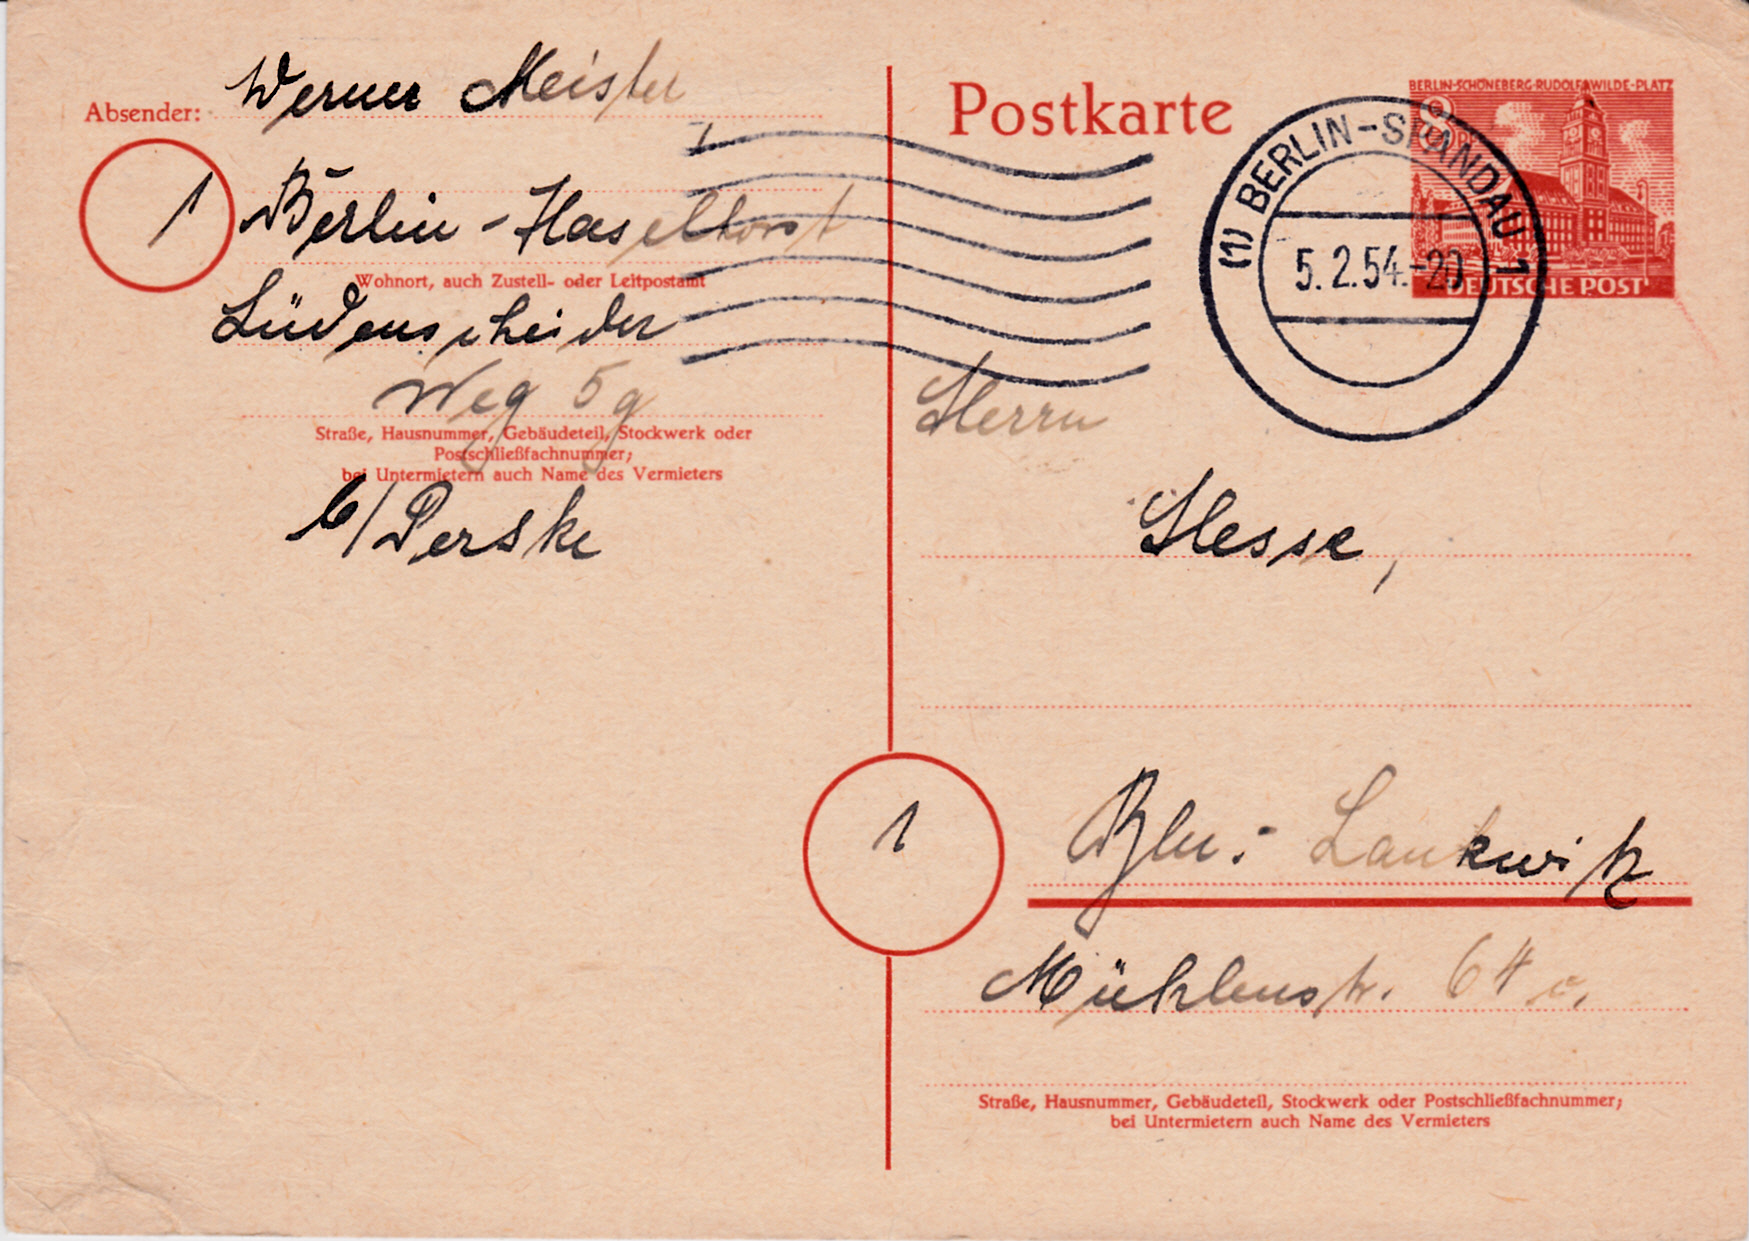 Absender: Werner Meister
1 Berlin-Haselhorst
Wohnort, auch Zustell- oder Leitpostamt
Lüdenscheider
Weg 5g
Straße, Hausnummer, Gebäudeteil, Stockwerk oder
Postschließfachnummer;
bei Untermietern auch Name des Vermieters
b/Perske
Postkarte
BERLIN-SCHÖNEBERG·RUDOLF-WILDE-PLATZ
8
DEUTSCHE POST
(1) BERLIN-SPANDAU 1
5.2.54.-20
Herrn
Hesse,
1
Bln.- Lankwitz
Mühlenstr. 64
Straße, Hausnummer, Gebäudeteil, Stockwerk oder Postschließfachnummer;
bei Untermietern auch Name des Vermieters